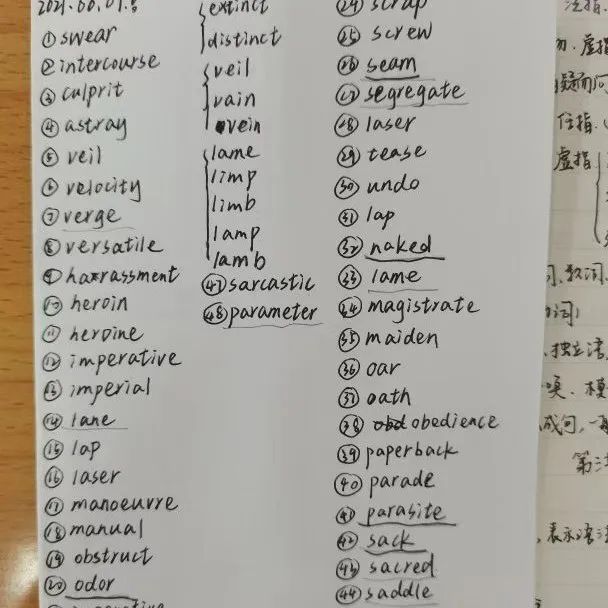 2021.00.01.
① swear
② intercourse
③ culprit
④ astray
⑤ veil
⑥ velocity
⑦ verge
⑧ versatile
⑨ harrassment
⑩ heroin
⑪ heroine
⑫ imperative
⑬ imperial
⑭ lane
⑮ lap
⑯ laser
⑰ manoeuvre
⑱ manual
⑲ obstruct
⑳ odor
extinct
distinct
veil
vain
vein
lame
limp
limb
lamp
lamb
㊼ sarcastic
㊽ parameter
㉔ scrap
㉕ screw
㉖ seam
㉗ segregate
㉘ laser
㉙ tease
㉚ undo
㉛ lap
㉜ naked
㉝ lame
㉞ magistrate
㉟ maiden
㊱ oar
㊲ oath
㊳ obedience
㊴ paperback
㊵ parade
㊶ parasite
㊷ sack
㊸ sacred
㊹ saddle
法指
虚指
疑而问
任指
虚指
歌词
独立语
第
表示语法